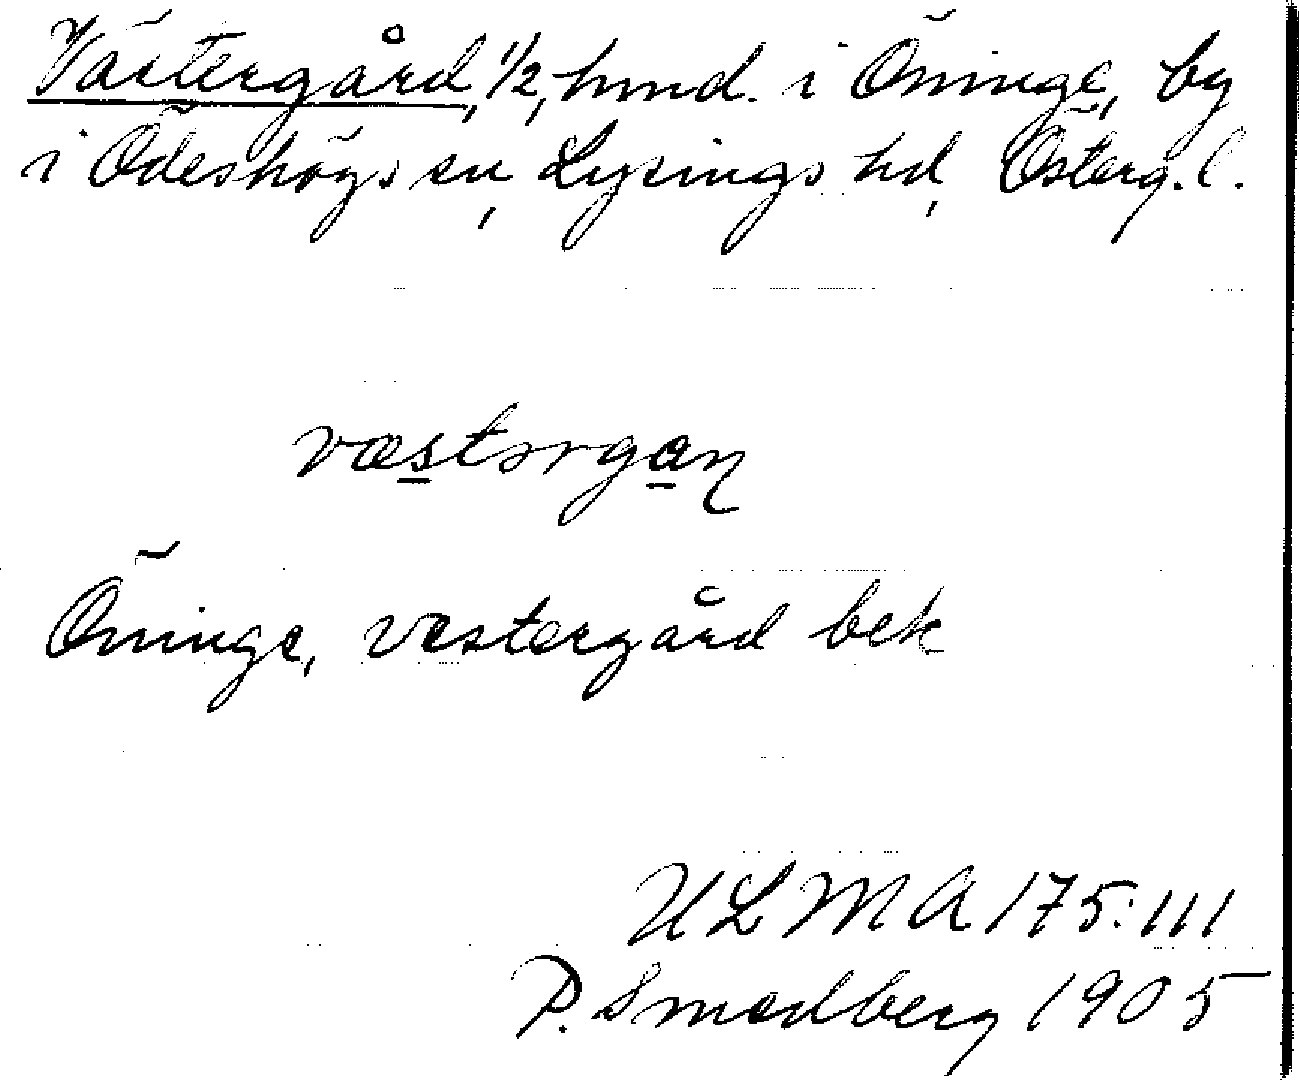 Västergård, 1/2, hmd. i Öninge, by
i Ödeshögs sn, Lysings hd, Österg. l.
væstərgaɳ
Öninge, västergård bek
ULMA 175:111
P. Smedberg 1905